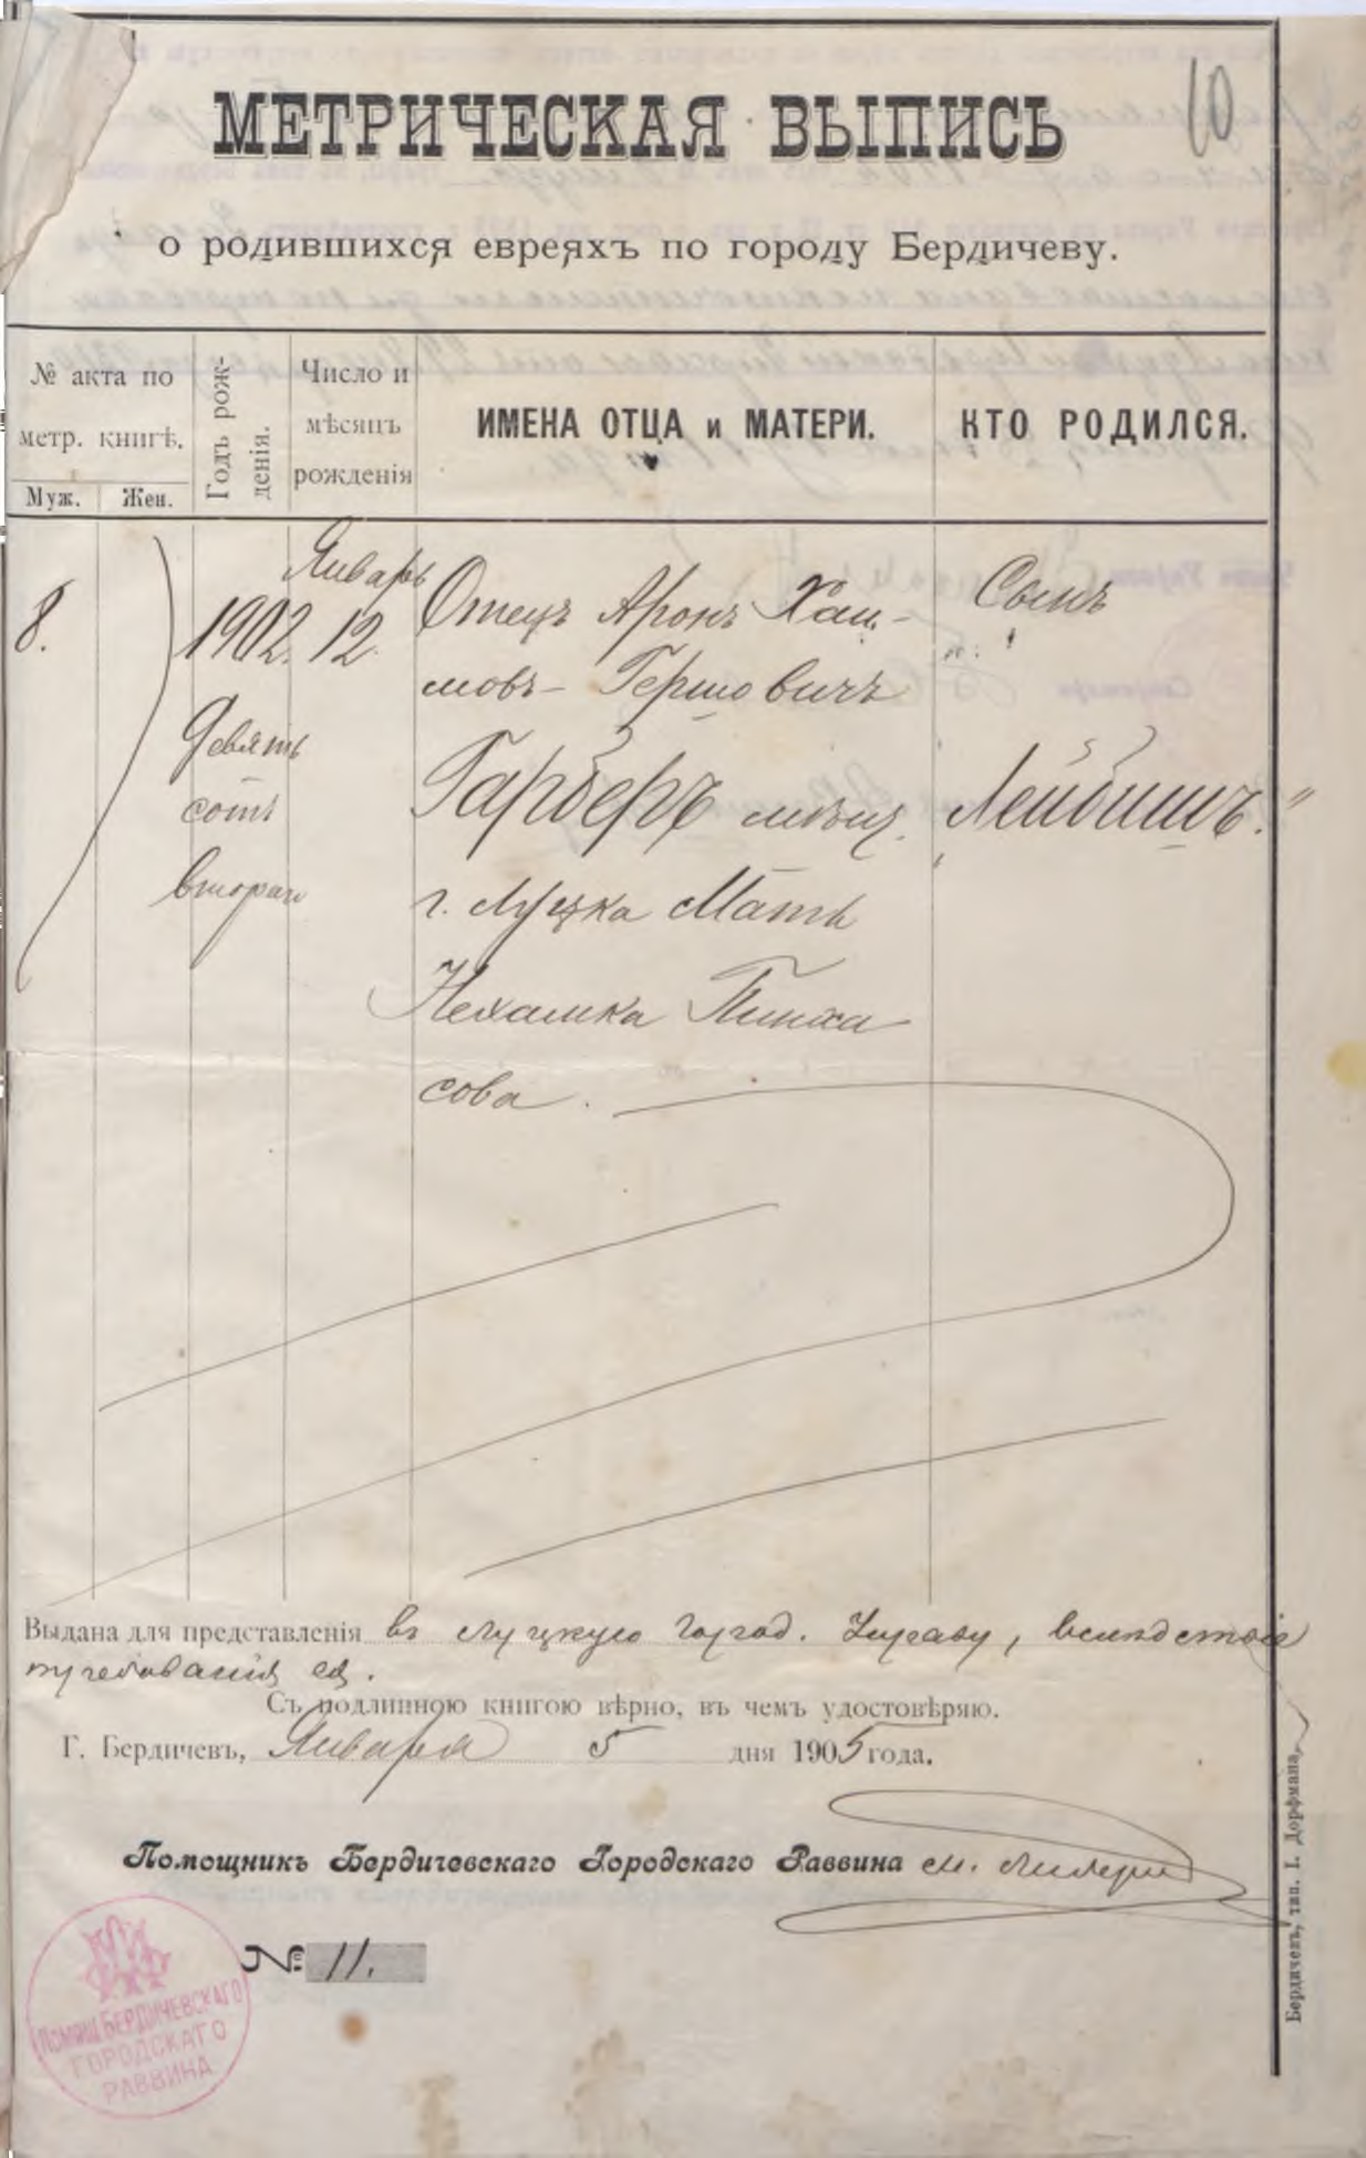 10
МЕТРИЧЕСКАЯ ВЫПИСЬ
о родившихся евреяхъ по городу Бердичеву.
№ акта по метр. книгѣ.
Муж. Жен.
Годъ рожденія.
Число и мѣсяцъ рожденія
ИМЕНА ОТЦА и МАТЕРИ.
КТО РОДИЛСЯ.
8.
1902.
Девять
сотъ
втораго
Январь
12.
Отецъ Аронъ Хаи-
мовъ-Гершовичъ
Гарберъ мѣщ.
г. Луцка Мать
Нехамка Пинха
сова.
Сынъ
Лейбишъ."
Выдана для представленія въ Луцкую Город. Управу, вслѣдствіе
требованія ея.
Съ подлинною книгою вѣрно, въ чемъ удостовѣряю.
Г. Бердичевъ, Января 5 дня 1905 года.
Помощникъ Бердичевскаго Городскаго Раввина М.
№ 11.
ПОМОЩ. БЕРДИЧЕВСКАГО
ГОРОДСКАГО
РАВВИНА
Бердичевъ, тип. І. Дорфмана